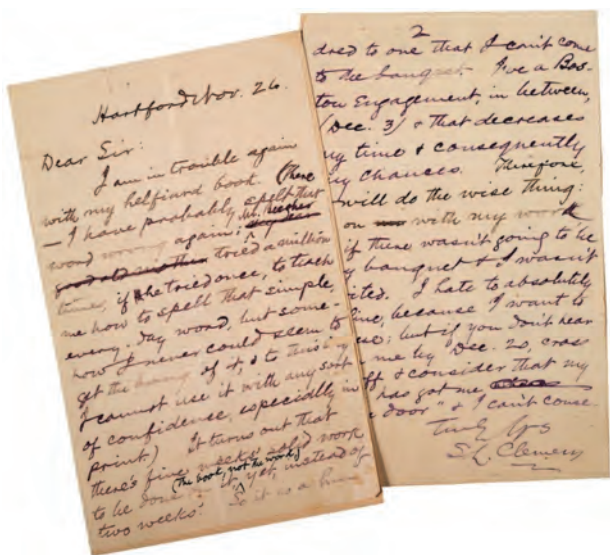 Hartford Nov. 26.
Dear Sir:
I am in trouble again
with my helfiard book. (There
— I have probably spelt that
word wrong again; Mr. Beecher
good old mother tried a million
times, if he tried once, to teach
me how to spell that simple,
every-day word, but some-
how I never could seem to
get the hang of it, & to this
I cannot use it with any sort
of confidence, especially in
print.) It turns out that
there's five weeks' solid work
(the book, not the word,)
to be done on it, yet, instead of
two weeks'. So it is a hun
2
dred to one that I can't come
to the banquet. I've a Bos-
ton Engagement, in between,
(Dec. 3) & that decreases
my time & consequently
my chances. Therefore,
will do the wise thing:
on with my work
if there wasn't going to be
banquet & I wasn't
ited. I hate to absolutely
line, because I want to
but if you don't hear
me by Dec. 20, cross
ff & consider that my
has got me
door" & I can't come
Truly Yrs
S. L. Clemens